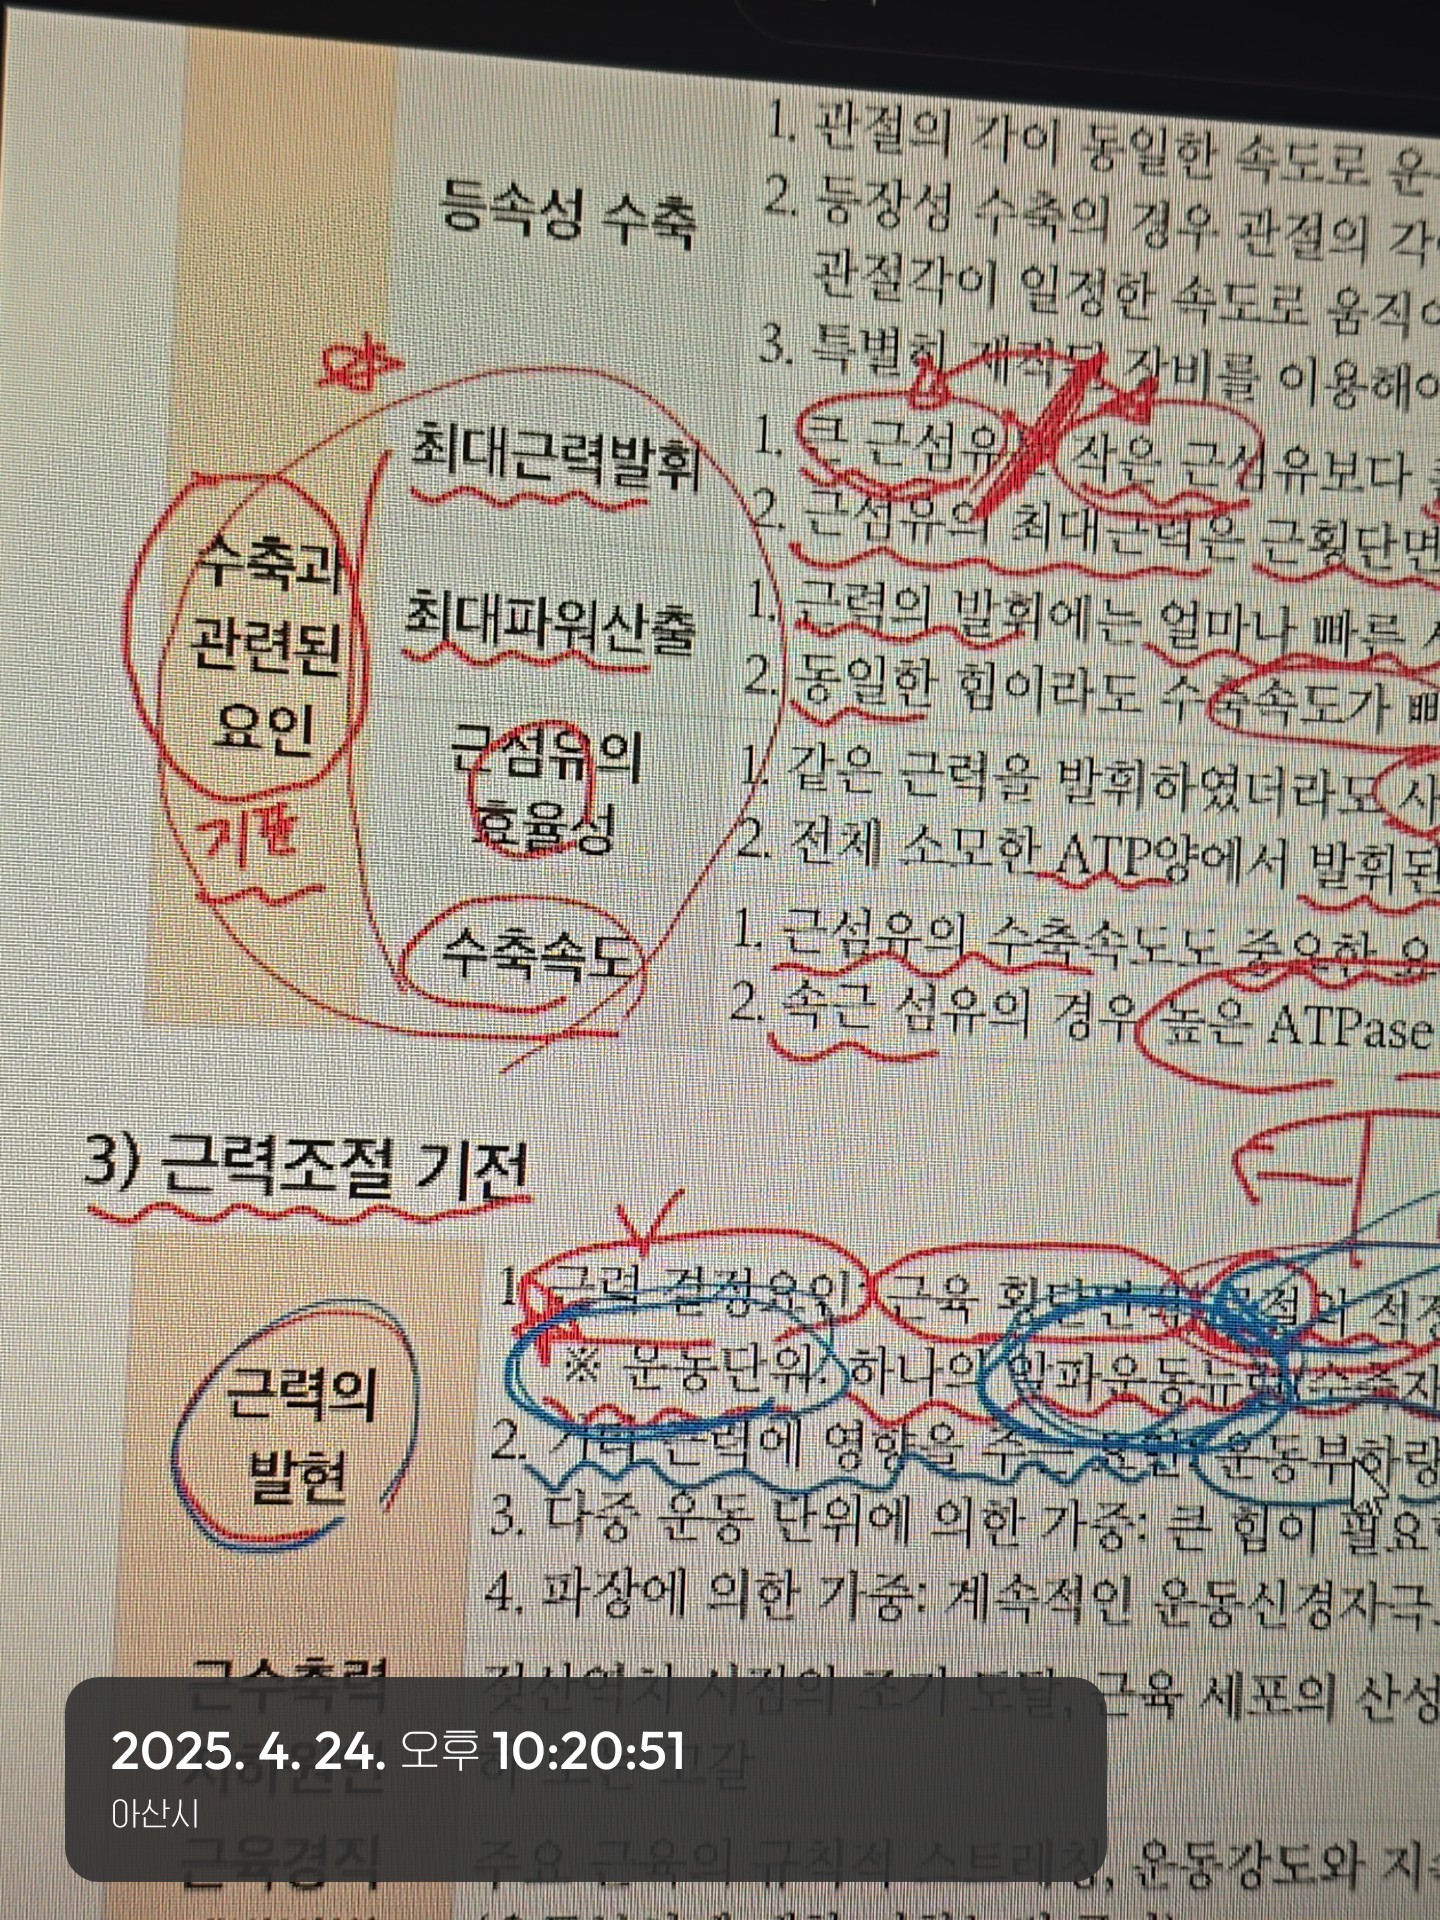 1. 관절의 각이 동일한 속도로 운
등속성 수축
2. 등장성 수축의 경우 관절의 각
관절각이 일정한 속도로 움직이
3. 특별히 제작된 장비를 이용해야
최대근력발휘
1. 큰 근섬유 작은 근섬유보다
2. 근섬유의 최대근력은 근횡단면
수축과
관련된
요인
기출
최대파워산출
1. 근력의 발휘에는 얼마나 빠른
2. 동일한 힘이라도 수축속도가
근섬유의
효율성
1. 같은 근력을 발휘하였더라도
2. 전체 소모한 ATP양에서 발휘된
수축속도
1. 근섬유의 수축속도도 중요한 요
2. 속근 섬유의 경우 높은 ATPase
3) 근력조절 기전
근력의
발현
1. 근력 결정요인: 근육 횡단면적 관절의
※ 운동단위: 하나의 알파운동뉴런
2. 기타 근력에 영향을 주는 요인: 운동부하량
3. 다중 운동 단위에 의한 가중: 큰 힘이 필요
4. 파장에 의한 가중: 계속적인 운동신경자극
근수축력
저하원인
젖산역치 시점의 조기 도달, 근육 세포의 산성
고갈
2025. 4. 24. 오후 10:20:51
아산시
근육경직
주요 근육의 규칙적 스트레칭, 운동강도와 지속